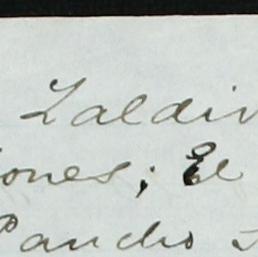 Zaldiv
ones; El
Pancho